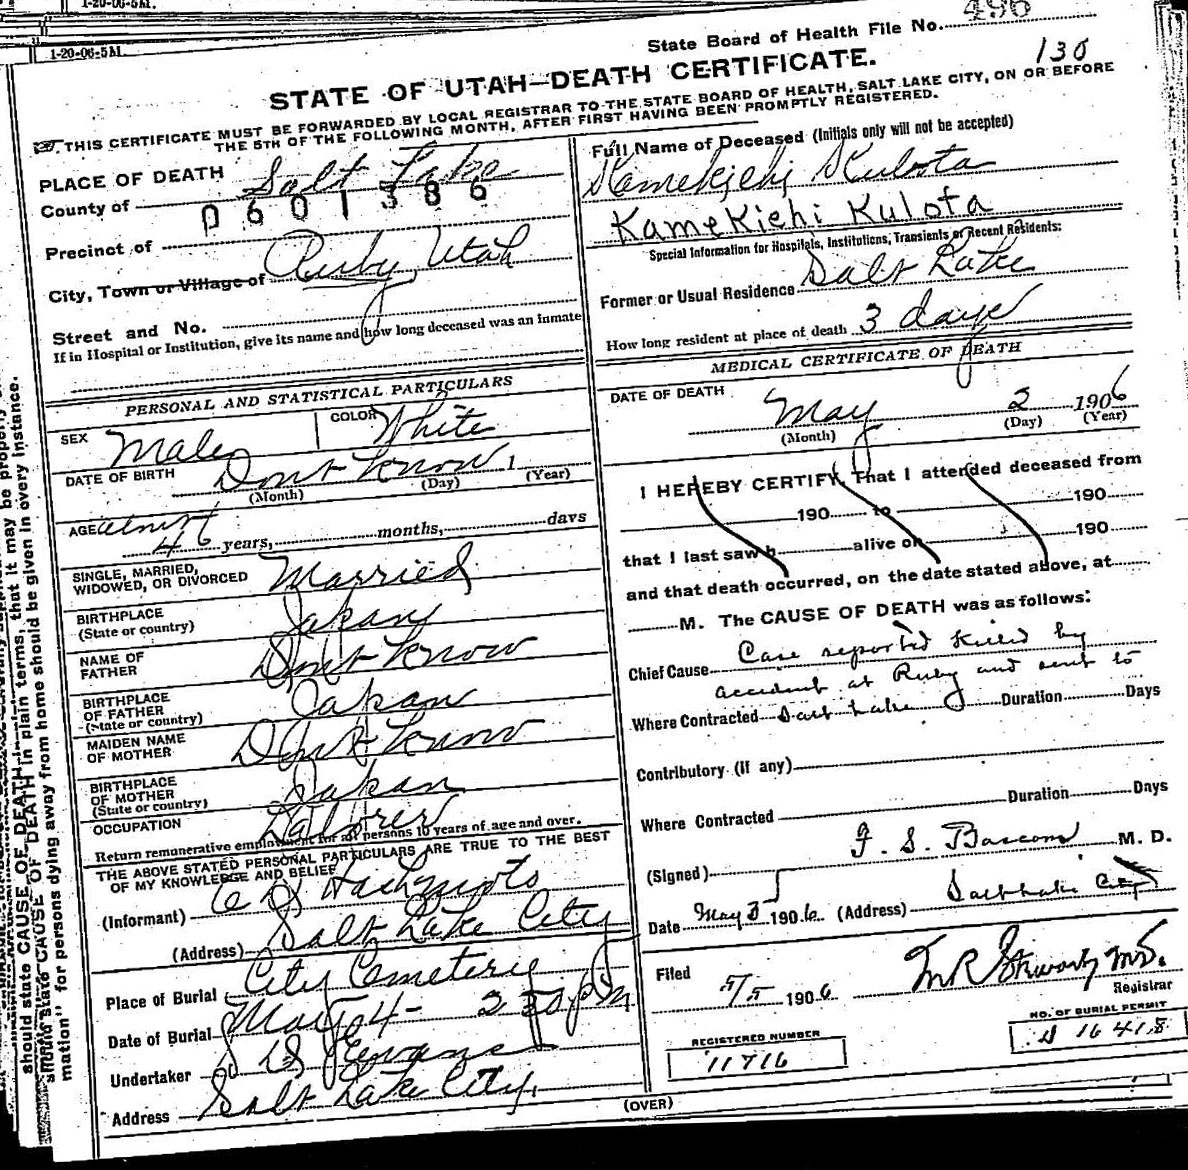 1-20-06-5M.
1-20-06-5M.
State Board of Health File No. 496
130
STATE OF UTAH—DEATH CERTIFICATE.
THIS CERTIFICATE MUST BE FORWARDED BY LOCAL REGISTRAR TO THE STATE BOARD OF HEALTH, SALT LAKE CITY, ON OR BEFORE
THE 5TH OF THE FOLLOWING MONTH, AFTER FIRST HAVING BEEN PROMPTLY REGISTERED.
PLACE OF DEATH
County of Salt Lake
0601386
Precinct of
City, Town or Village of Ruby, Utah
Street and No.
If in Hospital or Institution, give its name and how long deceased was an inmate
PERSONAL AND STATISTICAL PARTICULARS
SEX Male COLOR White
DATE OF BIRTH Dont Know 1
(Month) (Day) (Year)
AGE almost
46 years, months, days
SINGLE, MARRIED,
WIDOWED, OR DIVORCED Married
BIRTHPLACE
(State or country) Japan
NAME OF
FATHER Dont Know
BIRTHPLACE
OF FATHER
(State or country) Japan
MAIDEN NAME
OF MOTHER Dont Know
BIRTHPLACE
OF MOTHER
(State or country) Japan
OCCUPATION Laborer
Return remunerative employment for all persons 10 years of age and over.
THE ABOVE STATED PERSONAL PARTICULARS ARE TRUE TO THE BEST
OF MY KNOWLEDGE AND BELIEF
(Informant) Hashimoto
(Address) Salt Lake City
Place of Burial City Cemetery
Date of Burial May 4 - 2 30 pm
Undertaker S D Evans
Address Salt Lake City.
Full Name of Deceased (Initials only will not be accepted)
Kamekichi Kubota
KameKichi Kulota
Special Information for Hospitals, Institutions, Transients or Recent Residents:
Former or Usual Residence Salt Lake
How long resident at place of death 3 days
MEDICAL CERTIFICATE OF DEATH
DATE OF DEATH
May 2 1906
(Month) (Day) (Year)
I HEREBY CERTIFY, That I attended deceased from
190 to 190
190
that I last saw h alive on
and that death occurred, on the date stated above, at
M. The CAUSE OF DEATH was as follows:
Chief Cause Case reported killed by
accident at Ruby and sent to
Where Contracted Salt Lake Duration Days
Contributory (if any)
Where Contracted Duration Days
(Signed) F. S. Bascom M. D.
Date May 3 1906 (Address) Salt Lake City
Filed 5/5 1906
Registrar
REGISTERED NUMBER
11716
NO. OF BURIAL PERMIT
16418
(OVER)
should state CAUSE OF DEATH in plain terms, that it may be properly
mation" for persons dying away from home should be given in every instance.